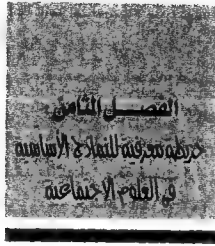 الفصل الثامن
خريطة معرفية للنماذج الأساسية
في العلوم الاجتماعية